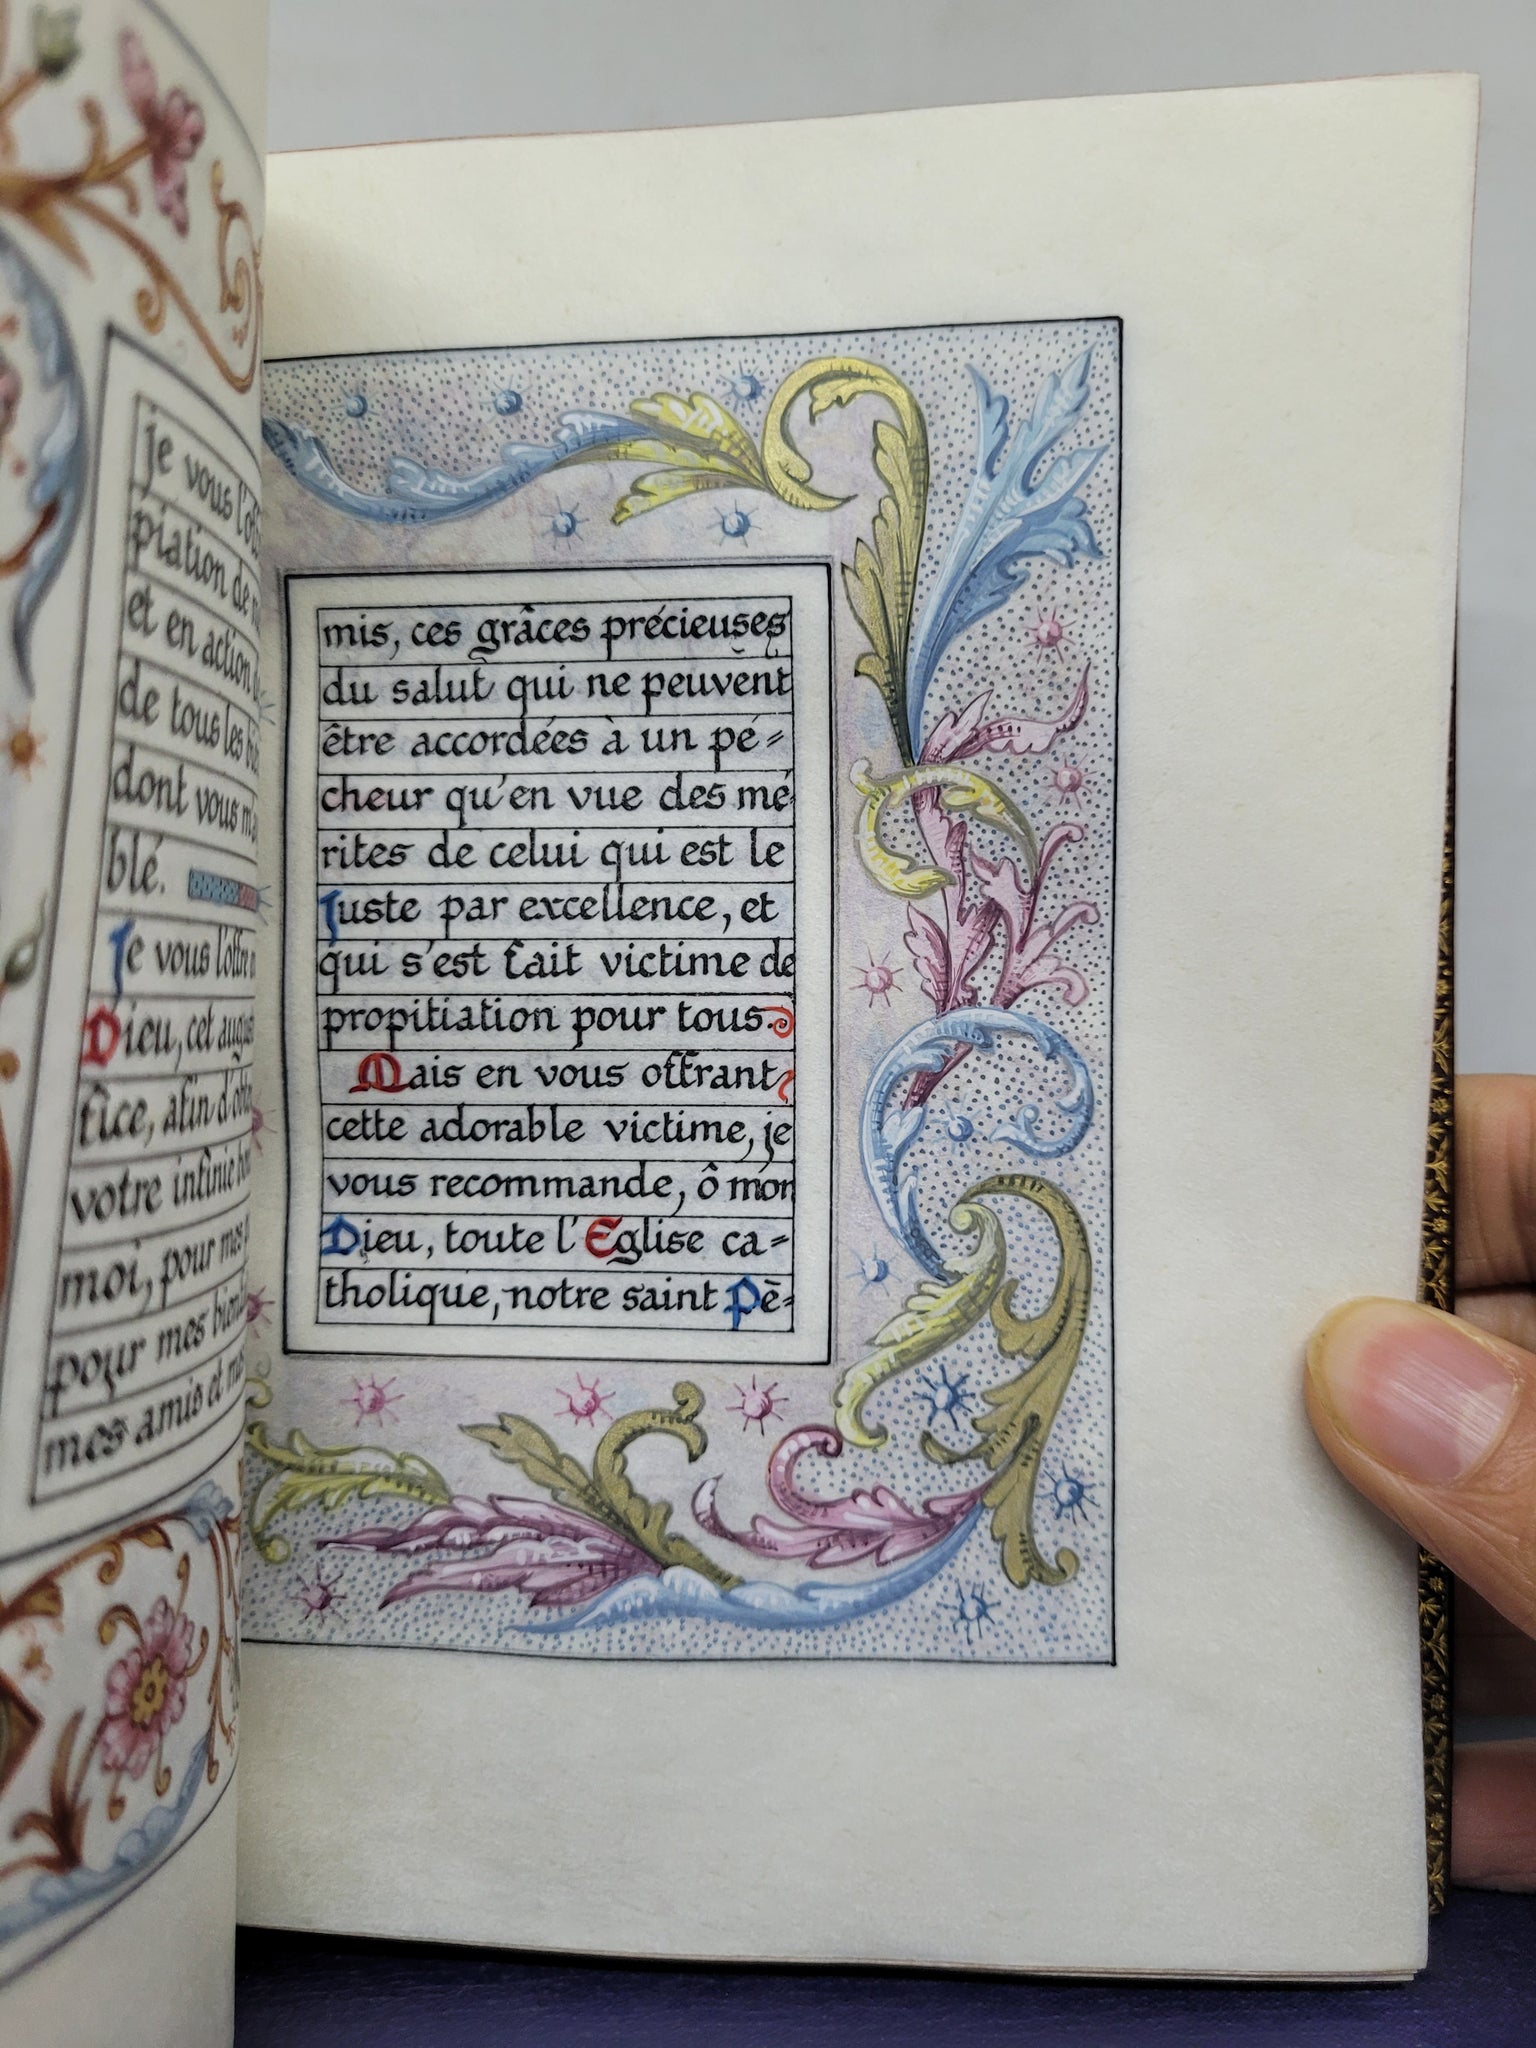 je vous
piation de
et en action
de tous les
dont vous
blé.
Je vous l'offre
Dieu, cet
fice, afin
votre infinie
moi, pour mes
pour mes
mes amis et mes
mis, ces grâces précieuses
du salut qui ne peuvent
être accordées à un pé=
cheur qu'en vue des mé
rites de celui qui est le
Juste par excellence, et
qui s'est fait victime de
propitiation pour tous.
Mais en vous offrant
cette adorable victime, je
vous recommande, ô mon
Dieu, toute l'Eglise ca=
tholique, notre saint Pè=